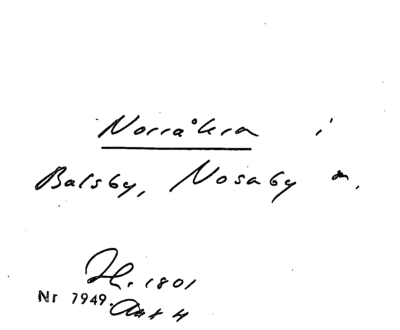 Norråkra i
Balsby, Nosaby sn.
Jh. 1801
Nr 7949. Akt 4